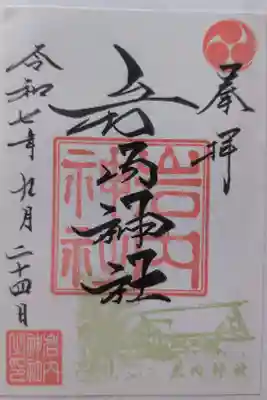 奉拝
岩内神社
岩内神社
令和七年九月二十四日
岩内神社之印
岩内神社